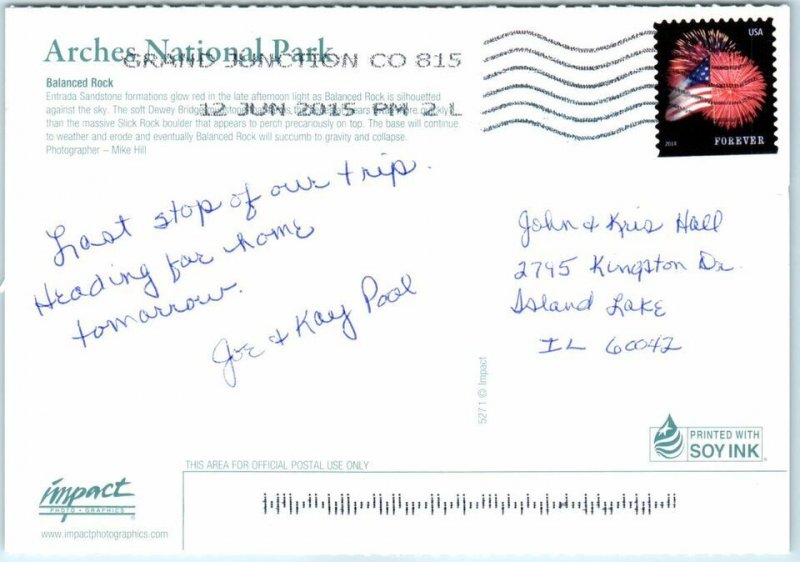 Arches National Park
GRAND JUNCTION CO 815
12 JUN 2015 PM 2 L
Balanced Rock
Entrada Sandstone formations glow red in the late afternoon light as Balanced Rock is silhouetted
against the sky. The soft Dewey Bridge quickly
than the massive Slick Rock boulder that appears to perch precariously on top. The base will continue
to weather and erode and eventually Balanced Rock will succumb to gravity and collapse.
Photographer – Mike Hill
USA
2014
FOREVER
Last stop of our trip.
Heading for home
tomorrow.
Joe & Kay Pool
John & Kris Hall
2795 Kingston Dr.
Island Lake
IL 60042
5271 © Impact
PRINTED WITH
SOY INK
THIS AREA FOR OFFICIAL POSTAL USE ONLY
impact
PHOTO • GRAPHICS
www.impactphotographics.com